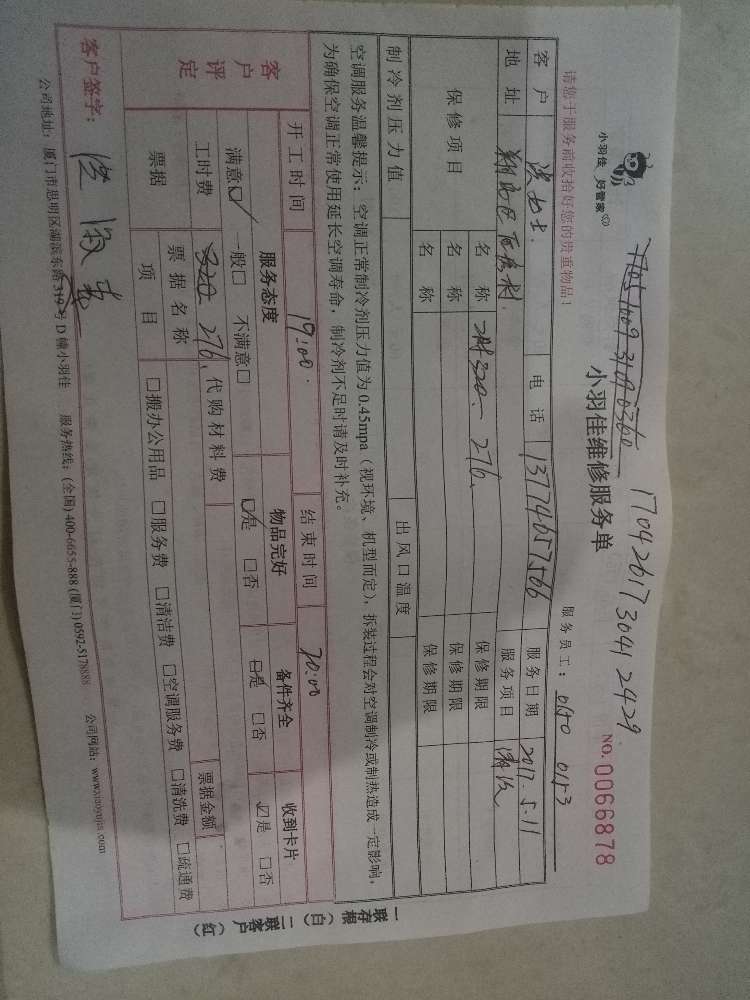 小羽佳 好管家
1704261730412429
小羽佳维修服务单
NO. 0066878
请您于服务前收拾好您的贵重物品!
服务员工: 0153
客户 电话 13774657566 服务日期 2017.5.11
地址 服务项目 清洗
保修项目 名称 276 保修期限
名称 保修期限
名称 保修期限
制冷剂压力值 出风口温度
空调服务温馨提示: 空调正常制冷剂压力值为 0.45mpa (视环境、机型而定), 拆装过程会对空调制冷或制热造成一定影响,
为确保空调正常使用延长空调寿命, 制冷剂不足时请及时补充。
开工时间 19:00 结束时间 20:00
客户评定 服务态度 物品完好 备件齐全 收到卡片
满意☑ 一般□ 不满意□ ☑是 □否 ☑是 □否 ☑是 □否
工时费 320 276 代购材料费
票据 票据名称 票据金额
项目 □搬办公用品 □服务费 □清洁费 □空调服务费 □清洗费 □疏通费
客户签字:
公司地址: 厦门市思明区湖滨东路 319 号 D 幢小羽佳 服务热线: (全国) 400-6655-888 (厦门) 0592-5178888 公司网站: www.xiaoyujia.com
一联存根(白) 二联客户(红)